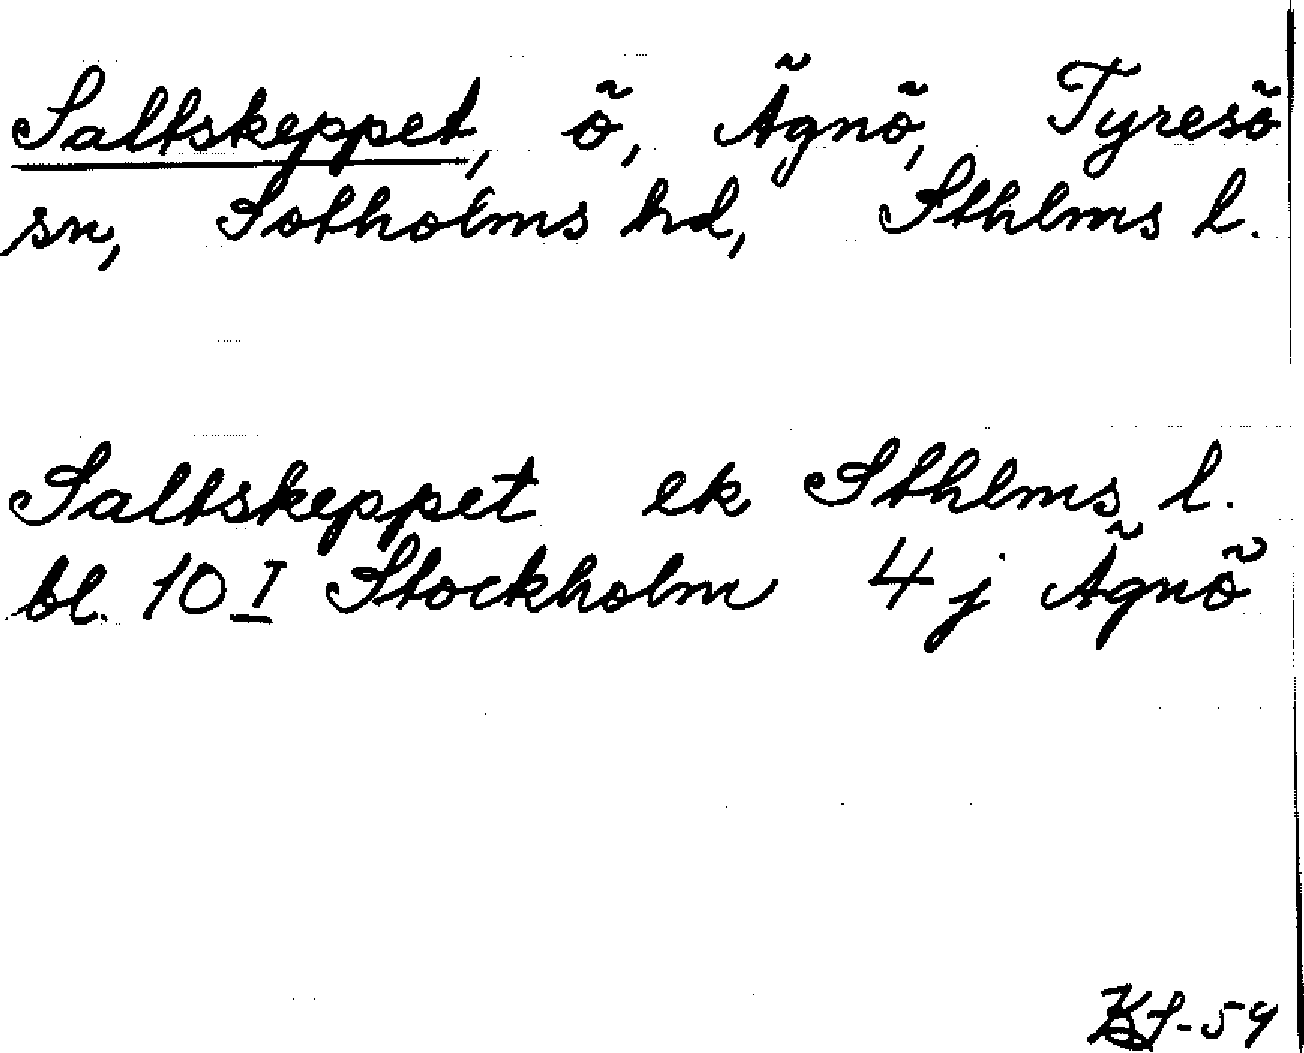 Saltskeppet, ö, Ägnö, Tyresö
sn, Sotholms hd, Sthlms l.
Saltskeppet ek Sthlms l.
bl. 10 I Stockholm 4 j Ägnö